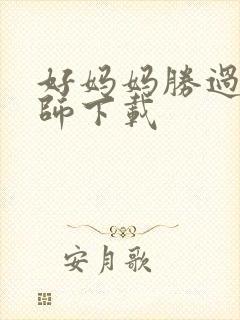 好妈妈勝過
師下載
安月歌